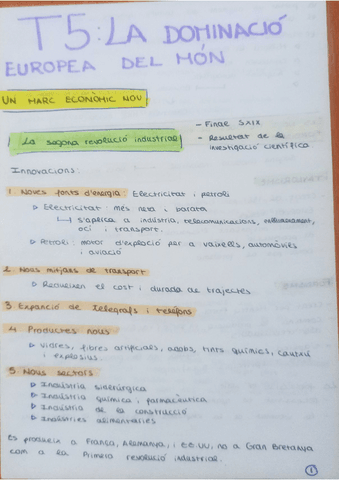 T5: LA DOMINACIÓ
EUROPEA DEL MÓN
UN MARC ECONÒMIC NOU
La segona revolució industrial
- Finals S.XIX
- Resultat de la
investigació científica
Innovacions:
1. Noves fonts d'energia: Electricitat i petroli
▷ Electricitat: més neta i barata
↳ s'aplica a indústria, telecomunicacions, enllumenament,
oci i transport.
▷ Petroli: motor d'explació per a vaixells, automòvils
i aviació
2. Nous mitjans de transport
▷ Redueixen el cost i durada de trajectes
3 Expanció de telegrafs i telèfons
4 Productes nous
▷ Vidres, fibres artificials, adobs, tints químics, cautxú
i explosius.
5 Nous sectors
▷ Indústria siderúrgica
▷ Indústria química i farmacèutica
▷ Indústria de la construcció
▷ Indústries alimentàries
Es produeix a França, Alemanya, i EE.UU, no a Gran Bretanya
com a la Primera revolució industrial.
1